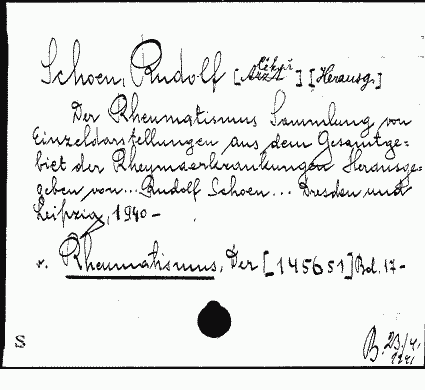 Schoen, Rudolf [Arzt lékař] [Herausg.]
Der Rheumatismus Sammlung von
Einzeldarstellungen aus dem Gesamtge=
biet der Rheumaerkrankungen Herausge=
geben von... Rudolf Schoen... Dresden und
Leipzig, 1940-
v. Rheumatismus, Der [145651] Bd. 17-
S
B. 23/4.
1941